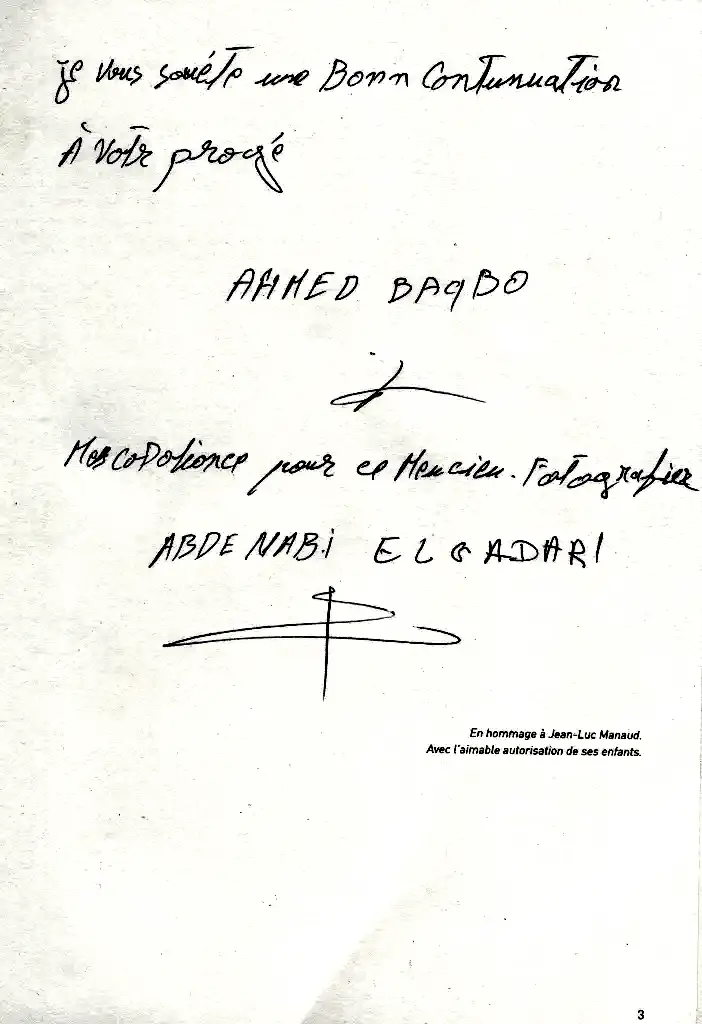 je vous souéte une Bonn Contunuation
À Votr progé
AHMED BAQBO
Mes coDoliance pour ce Mencieu. Fotografier
ABDENABi EL GADARI
En hommage à Jean-Luc Manaud.
Avec l'aimable autorisation de ses enfants.
3